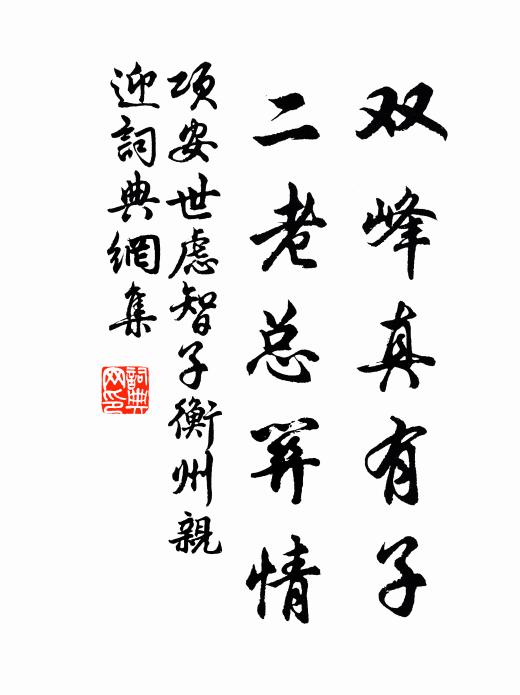 双峰真有子
二老总关情
项安世虑智子衡州親
迎詞典網集
詞典
网印